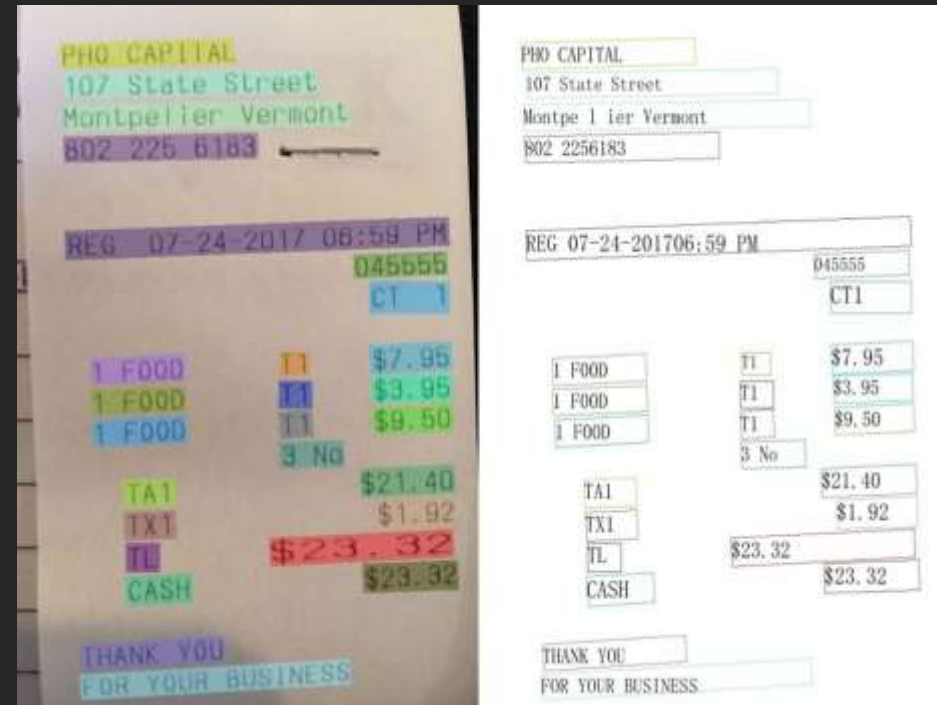 PHO CAPITAL
107 State Street
Montpelier Vermont
802 225 6183
REG 07-24-2017 06:59 PM
045555
CT 1
1 FOOD T1 $7.95
1 FOOD T1 $3.95
1 FOOD T1 $9.50
3 No
TA1 $21.40
TX1 $1.92
TL $23.32
CASH $23.32
THANK YOU
FOR YOUR BUSINESS
PHO CAPITAL
107 State Street
Montpe l ier Vermont
802 2256183
REG 07-24-201706:59 PM
045555
CT1
1 FOOD T1 $7.95
1 FOOD T1 $3.95
1 FOOD T1 $9.50
3 No
TA1 $21.40
TX1 $1.92
TL $23.32
CASH $23.32
THANK YOU
FOR YOUR BUSINESS